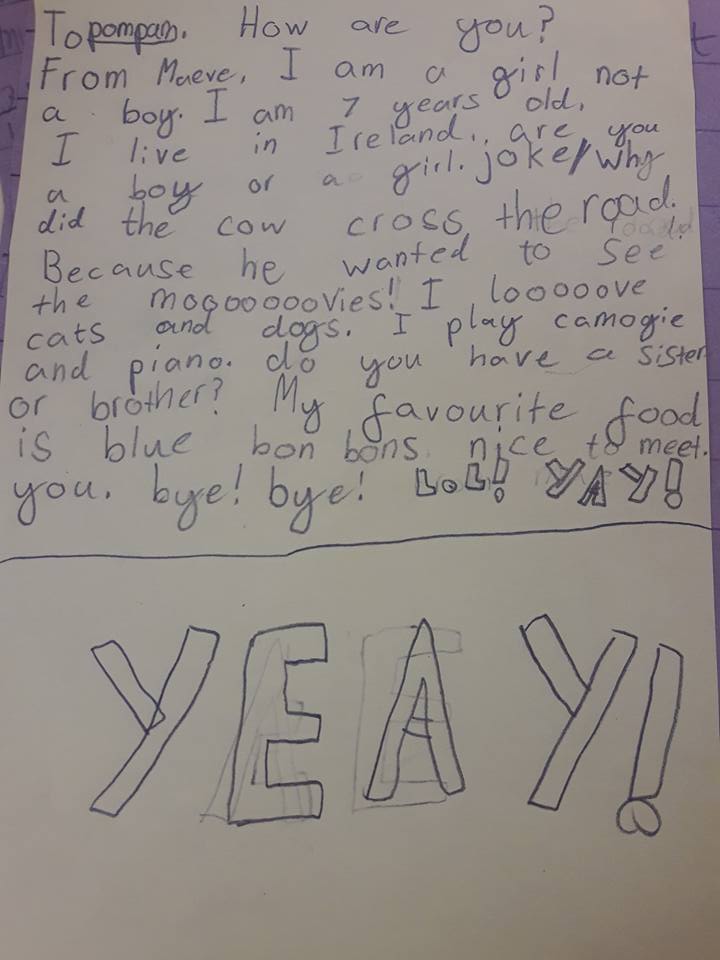 To pompam. How are you?
From Maeve, I am a girl not
a boy. I am 7 years old.
I live in Ireland., are you
a boy or a girl. joke/why
did the cow cross the road.
Because he wanted to see
the mooooooovies! I looooove
cats and dogs. I play camogie
and piano. do you have a sister
or brother? My favourite food
is blue bon bons nice to meet.
you. bye! bye! LoL! YAY!
YEAY!